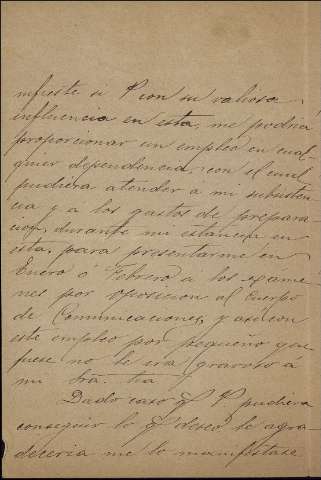 nifieste si V. con su valiosa
influencia en esta, me podria
proporcionar un empleo en cual
quier dependencia, con el cual
pudiera atender a mi subsisten
cia y a los gastos de prepara
cion, durante mi estancia en
esta, para presentarme en
Enero ó Febrero a los exáme
nes por oposicion al cuerpo
de Comunicaciones, y asi con
este empleo por pequeño que
fuese no le era gravoso á
mi Sra. tia
Dado caso q.e V. pudiera
conseguir lo q.e deseo le agra
deceria me lo manifestase